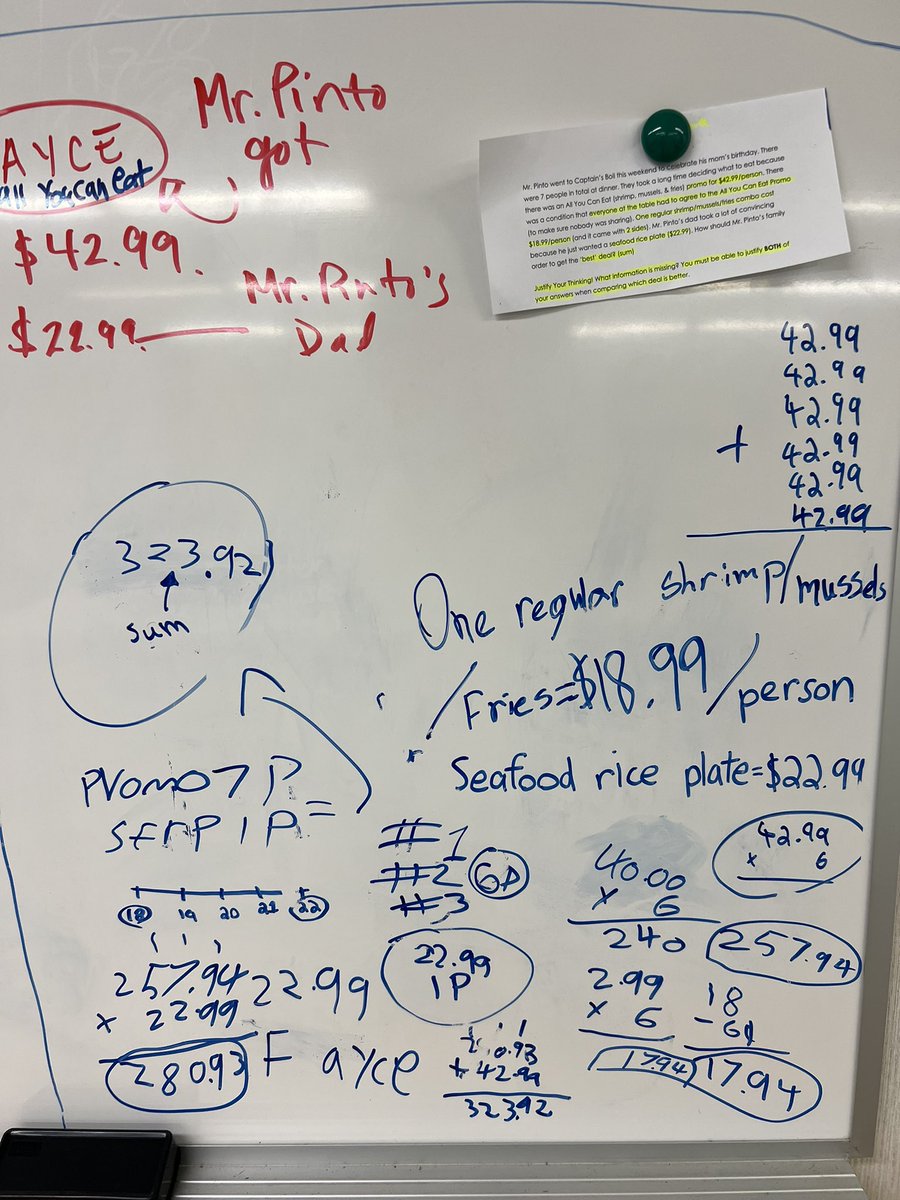 AYCE
all You Can eat
$42.99.
$22.99.
Mr. Pinto
got
Mr. Pinto's
Dad
Mr. Pinto went to Captain's Boil this weekend to celebrate his mom's birthday. There
were 7 people in total at dinner. They took a long time deciding what to eat because
there was an All You Can Eat (shrimp, mussels, & fries) promo for $42.99/person. There
was a condition that everyone at the table had to agree to the All You Can Eat Promo
(to make sure nobody was sharing). One regular shrimp/mussels/fries combo cost
$18.99/person (and it came with 2 sides). Mr. Pinto's dad took a lot of convincing
because he just wanted a seafood rice plate ($22.99). How should Mr. Pinto's family
order to get the 'best' deal? (sum)
Justify Your Thinking! What information is missing? You must be able to justify BOTH of
your answers when comparing which deal is better.
42.99
42.99
42.99
+ 42.99
42.99
42.99
323.92
sum
One regular shrimp/mussels
/Fries=$18.99/person
Seafood rice plate=$22.99
Promo 7 P
SFRP 1 P =
#1
#2 6P
#3
18 19 20 21 22
257.94
x 22.99
280.93
22.99
F ayce
22.99
1P
+ 42.99
323.92
40.00
x 6
240
2.99
x 6
17.94
42.99
x 6
257.94
18
- 6¢
17.94